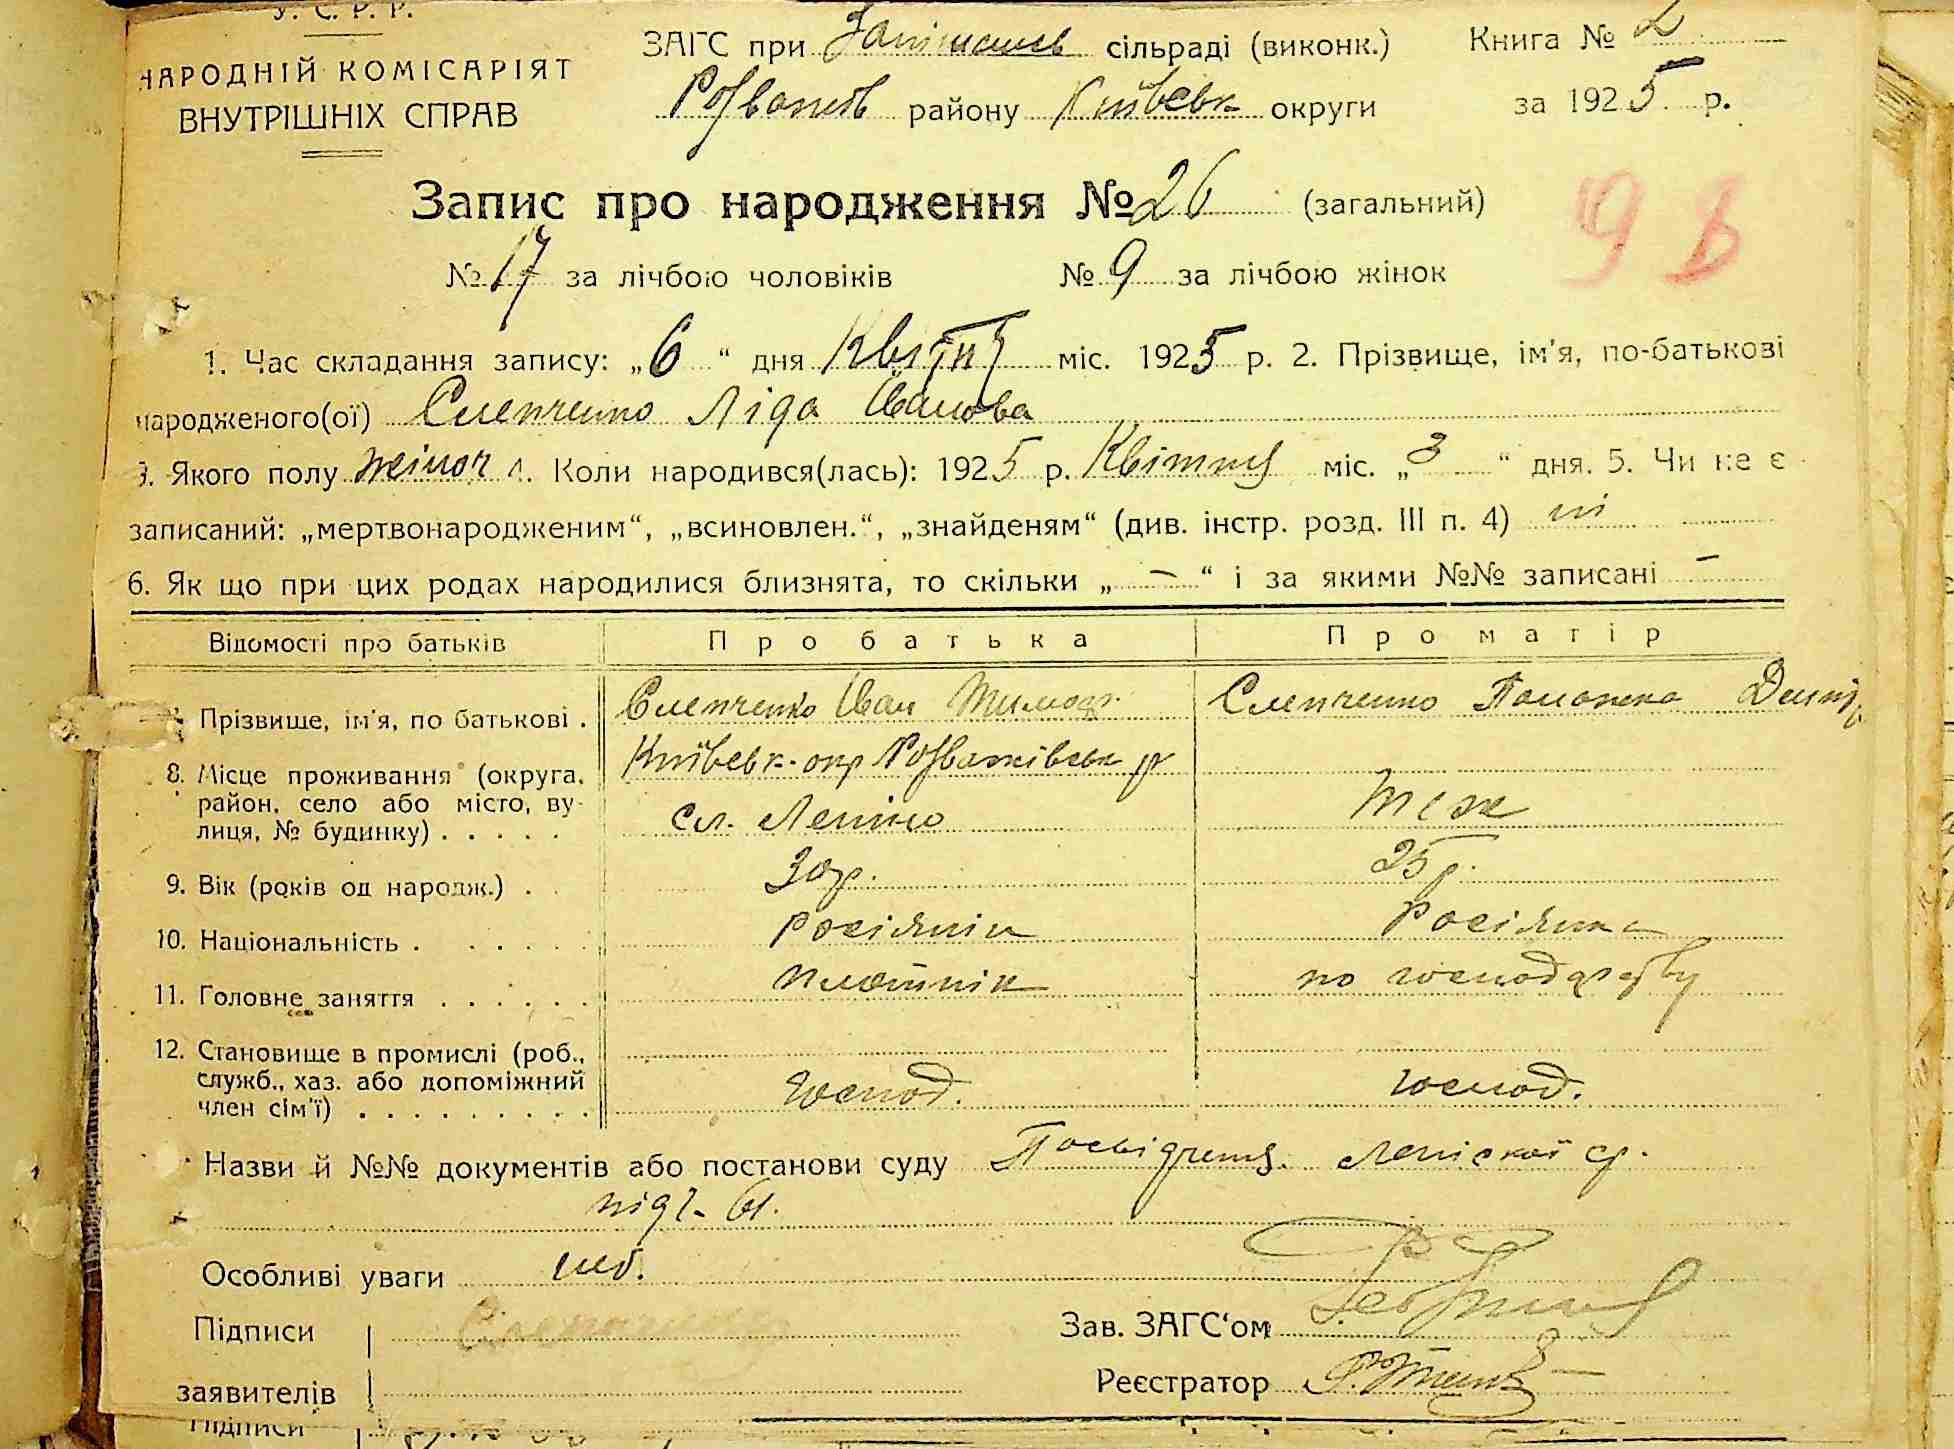 У. С. Р. Р.
НАРОДНІЙ КОМІСАРІЯТ
ВНУТРІШНІХ СПРАВ
ЗАГС при сільраді (виконк.) Книга № 2
Розважів району Київськ округи за 1925 р.
Запис про народження № 26 (загальний)
9 8
№ 17 за лічбою чоловіків № 9 за лічбою жінок
1. Час складання запису: „6“ дня Квітня міс. 1925 р. 2. Прізвище, ім'я, по-батькові
народженого(ої) Слепченко Ліда Іванова
3. Якого полу жіноч 4. Коли народився(лась): 1925 р. Квітня міс. „3“ дня. 5. Чи не є
записаний: „мертвонародженим“, „всиновлен.“, „знайденям“ (див. інстр. розд. III п. 4) ні
6. Як що при цих родах народилися близнята, то скільки „–“ і за якими №№ записані –
Відомості про батьків Про батька Про матір
7. Прізвище, ім'я, по батькові . Слепченко Іван Тимоф. Слепченко Палажка
8. Місце проживання (округа, Київськ. окр Розважівськ р
район, село або місто, ву-
лиця, № будинку) . . . . . сл. Леніно теж
9. Вік (років од народж.) . . 30р. 25р.
10. Національність . . . . . . росіянін росіянка
11. Головне заняття . . . . . . плотнік по господарству
12. Становище в промислі (роб.,
служб., хаз. або допоміжний
член сім'ї) . . . . . . . . . господ. господ.
Назви й №№ документів або постанови суду Посвідчення ср.
під ч. 61.
Особливі уваги
Підписи Слепченко Зав. ЗАГС'ом
заявителів Реєстратор
Підписи